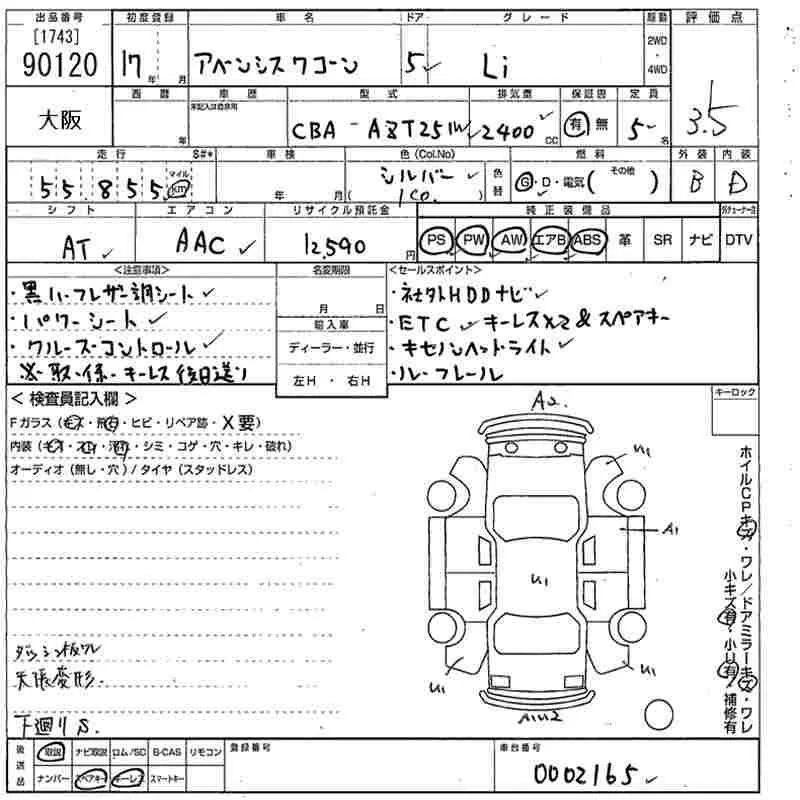 出品番号 初度登録 車名 ドア グレード 駆動 評価点
[1743]
90120
17年 月 アベンシスワゴン 5 Li 2WD・4WD
3.5
大阪
西暦 車歴 型式 排気量 保証書 定員
未記入は自家用
年 CBA-AZT251W 2400cc 有 無 5名
走行 S#* 車検 色(Col.No) 燃料 外装 内装
55,855 マイル km 年 月 シルバー ( 1C0. ) 色替 G・D・電気( その他 ) B D
シフト エアコン リサイクル預託金 純正装備品
AT AAC 12,590円 PS PW AW エアB ABS 革 SR ナビ DTV
<注意事項> 名変期限 <セールスポイント>
・黒ハーフレザー調シート
・パワーシート
・クルーズコントロール
※取・保・キーレス後日送り
月 日
輸入車
ディーラー・並行
左H・右H
・社外HDDナビ
・ETC キーレスX2&スペアキー
・キセノンヘッドライト
・ルーフレール
<検査員記入欄>
Fガラス(キズ・飛石・ヒビ・リペア跡・X要)
内装(キズ・スレ・汚れ・シミ・コゲ・穴・キレ・破れ)
オーディオ(無し・穴)/タイヤ(スタッドレス)
キーロック
A2
U1
A1
U1
U1
U1
ホイルCPキズ・ワレ/ドアミラーキズ・ワレ
小キズ有・小U有・補修有
天張変形.
下廻りS.
後送品 取説 ナビ取説 ロム/SD B-CAS リモコン 登録番号 車台番号
ナンバー スペアキー キーレス スマートキー
0002165